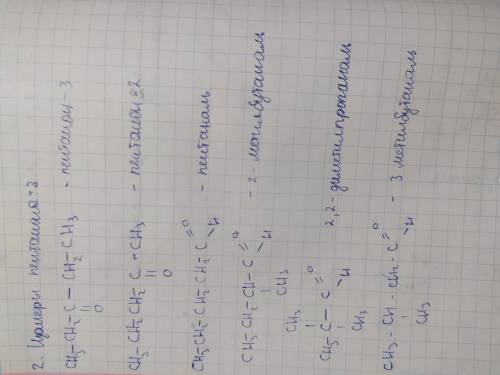 2. Изомеры пентанола-3
CH3-CH2-C-CH2-CH3 - пентанон-3
||
O
CH3-CH2-CH2-C-CH3 - пентанон-2
||
O
CH3-CH2-CH2-CH2-C=O - пентаналь
H
CH3-CH2-CH-C=O - 2-метилбутаналь
CH3 H
CH3
CH3-C-C=O 2,2-диметилпропаналь
CH3 H
CH3-CH-CH2-C=O - 3 метилбутаналь
CH3 H